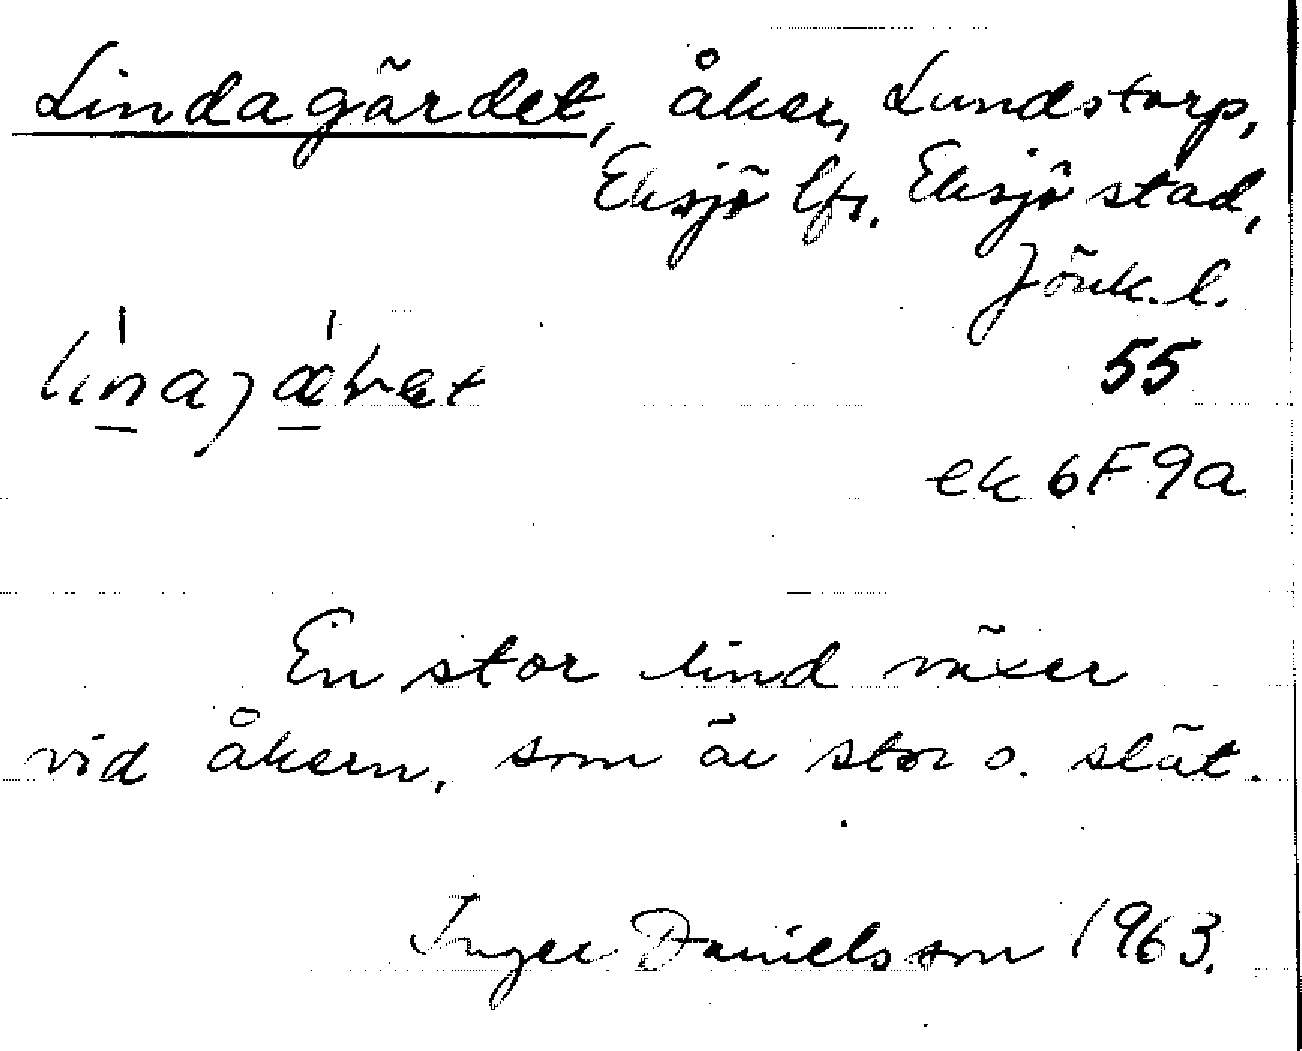 Lindagärdet, åker, Lundstorp,
Eksjö lfs. Eksjö stad,
Jönk. l.
55
ek 6F 9a
En stor lind växer
vid åkern, som är stor o. slät.
Inger Danielsson 1963.